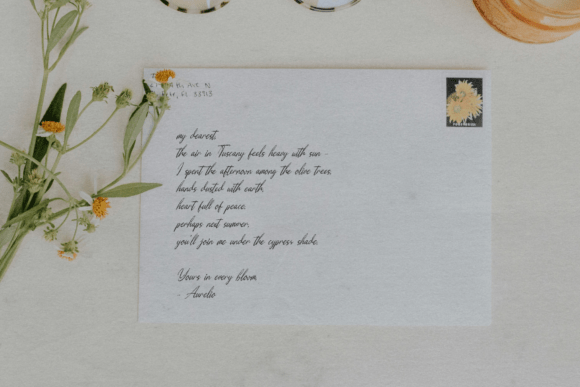 Ave N
FL 33713
my dearest,
the air in Tuscany feels heavy with sun -
I spent the afternoon among the olive trees,
hands dusted with earth,
heart full of peace.
perhaps next summer,
you'll join me under the cypress shade.
Yours in every bloom,
- Aurelio